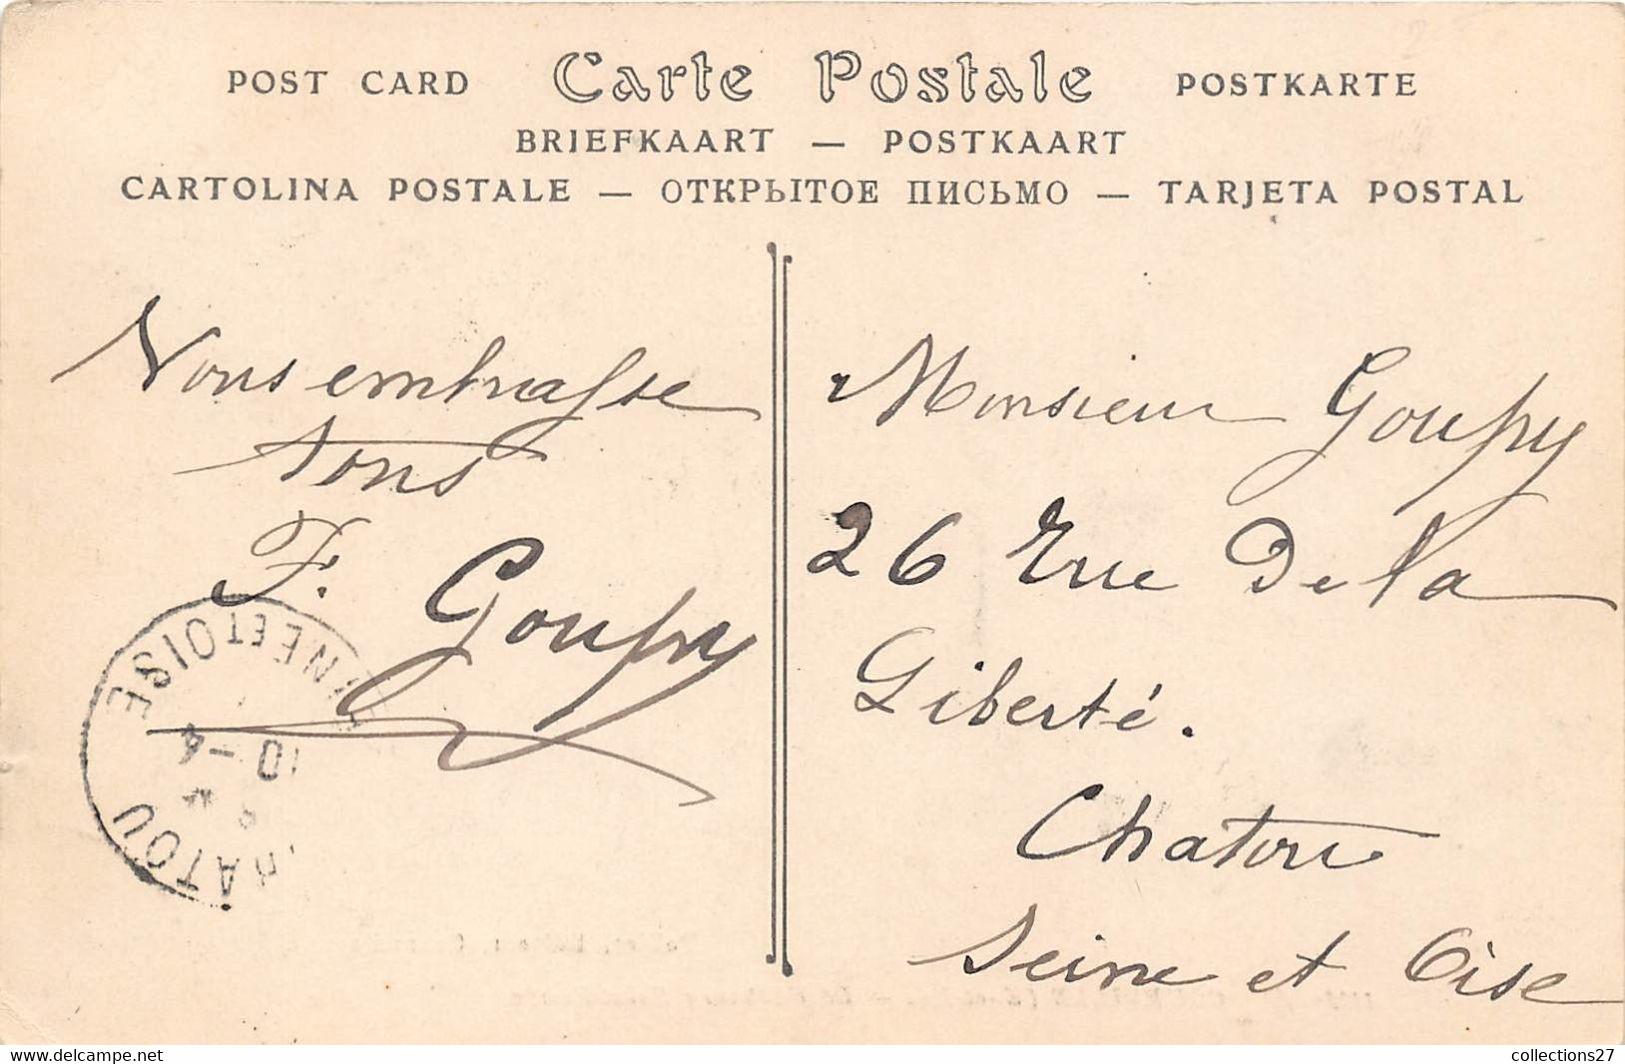 POST CARD Carte Postale POSTKARTE
BRIEFKAART — POSTKAART
CARTOLINA POSTALE — ОТКРЫТОЕ ПИСЬМО — TARJETA POSTAL
Nous embrasse
tous
F. Goupy
Monsieur Goupy
26 Rue De la
Liberté.
Chatou
Seine et Oise
NE ET OISE
10-4
ATOU
collections27